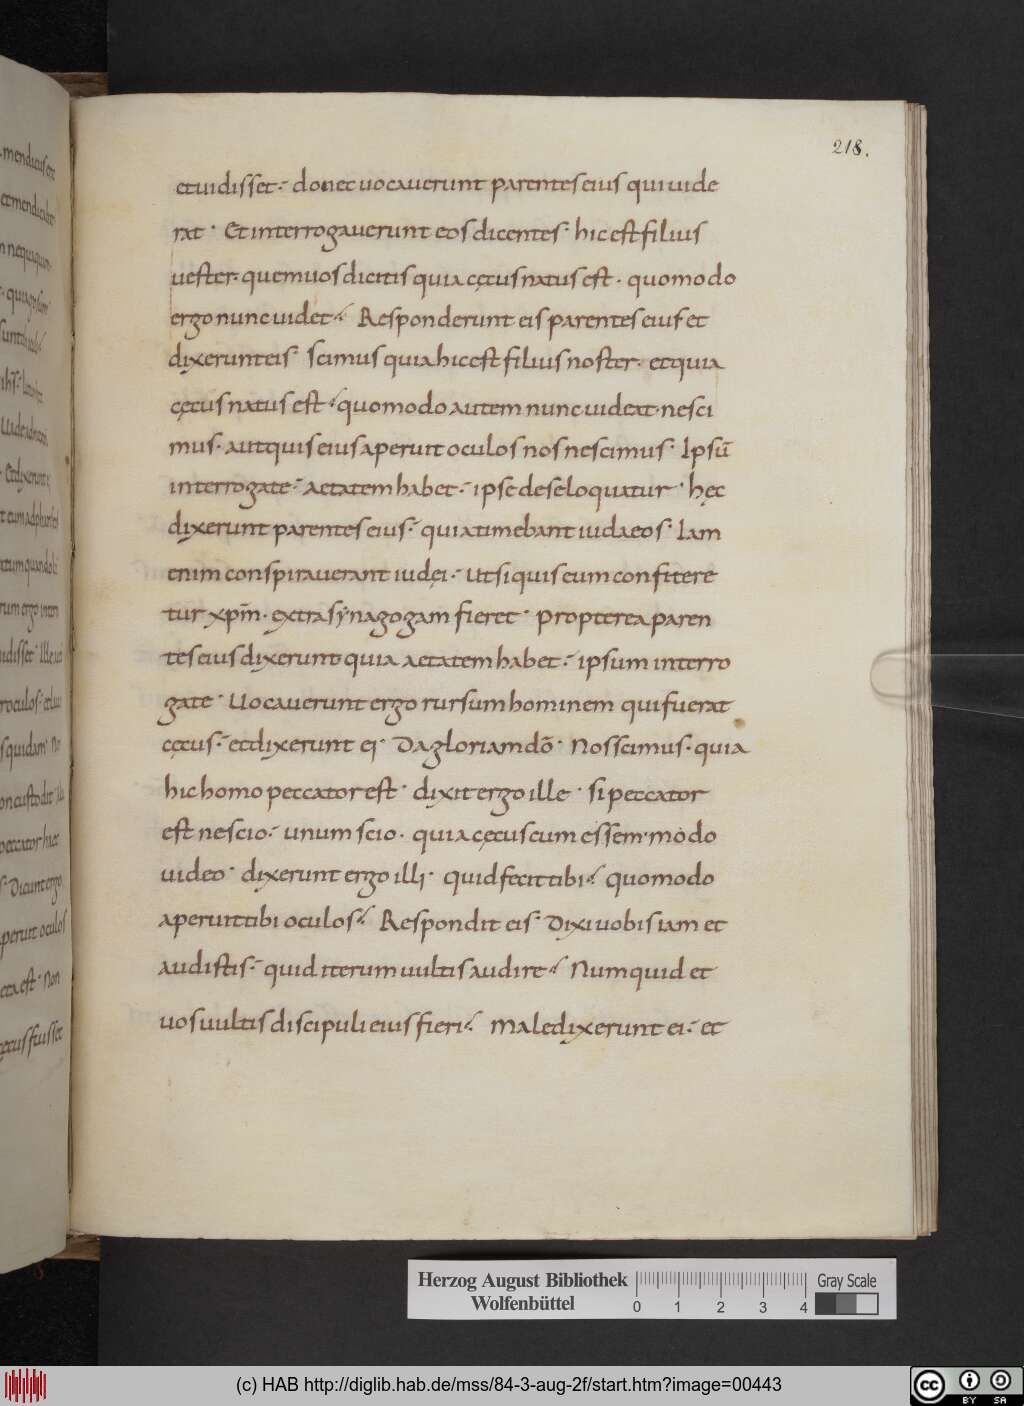 218.
et uidisset· donec uocauerunt parentes eius qui uide
rat · Et interrogauerunt eos dicentes · hic est filius
uester · quem uos dicitis quia cęcus natus est · quomodo
ergo nunc uidet · Responderunt eis parentes eius et
dixerunt eis · Scimus quia hic est filius noster · et quia
cęcus natus est · quomodo autem nunc uideat · nesci
mus · aut quis eius aperuit oculos nos nescimus · Ipsū
interrogate · aetatem habet · ipse de se loquatur · hęc
dixerunt parentes eius · quia timebant iudaeos · Iam
enim conspirauerant iudęi · ut si quis eum confitere
tur xp̄m · extra synagogam fieret · Propterea paren
tes eius dixerunt quia aetatem habet · ipsum interro
gate · Uocauerunt ergo rursum hominem qui fuerat
cęcus · et dixerunt ei · Da gloriam dō · Nos scimus · quia
hic homo peccator est · dixit ergo ille · si peccator
est nescio · unum scio · quia cęcus cum essem · modo
uideo · dixerunt ergo illi · quid fecit tibi · quomodo
aperuit tibi oculos · Respondit eis · Dixi uobis iam et
audistis · quid iterum uultis audire · Numquid et
uos uultis discipuli eius fieri · Maledixerunt ei · et
Herzog August Bibliothek
Wolfenbüttel
0 1 2 3 4
Gray Scale
(c) HAB http://diglib.hab.de/mss/84-3-aug-2f/start.htm?image=00443
cc BY SA